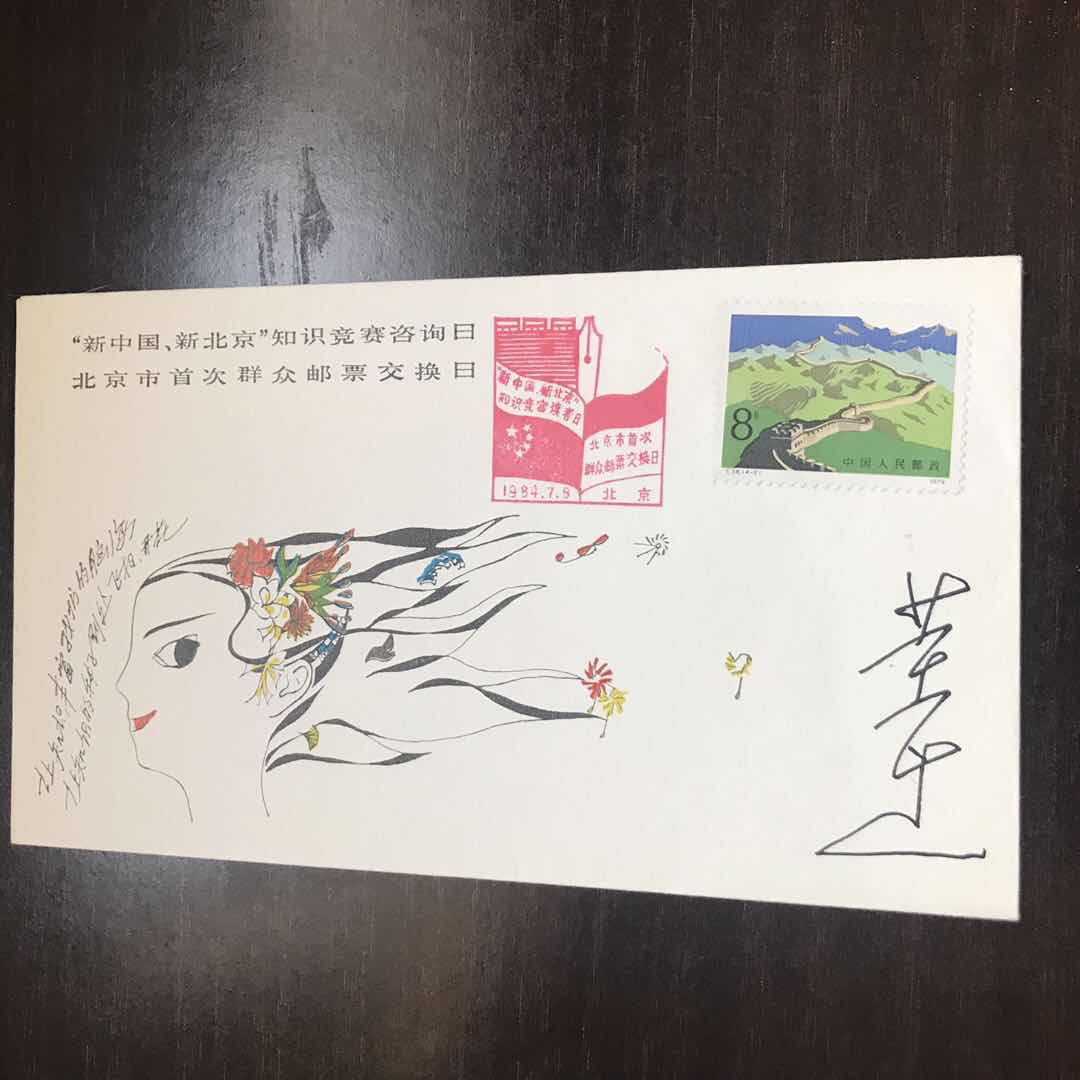 “新中国、新北京”知识竞赛咨询日
北京市首次群众邮票交换日
“新中国、新北京”
知识竞赛读者日
北京市首次
群众邮票交换日
1984.7.8 北京
8分
中国人民邮政
1979
让知识丰富我们的脑海